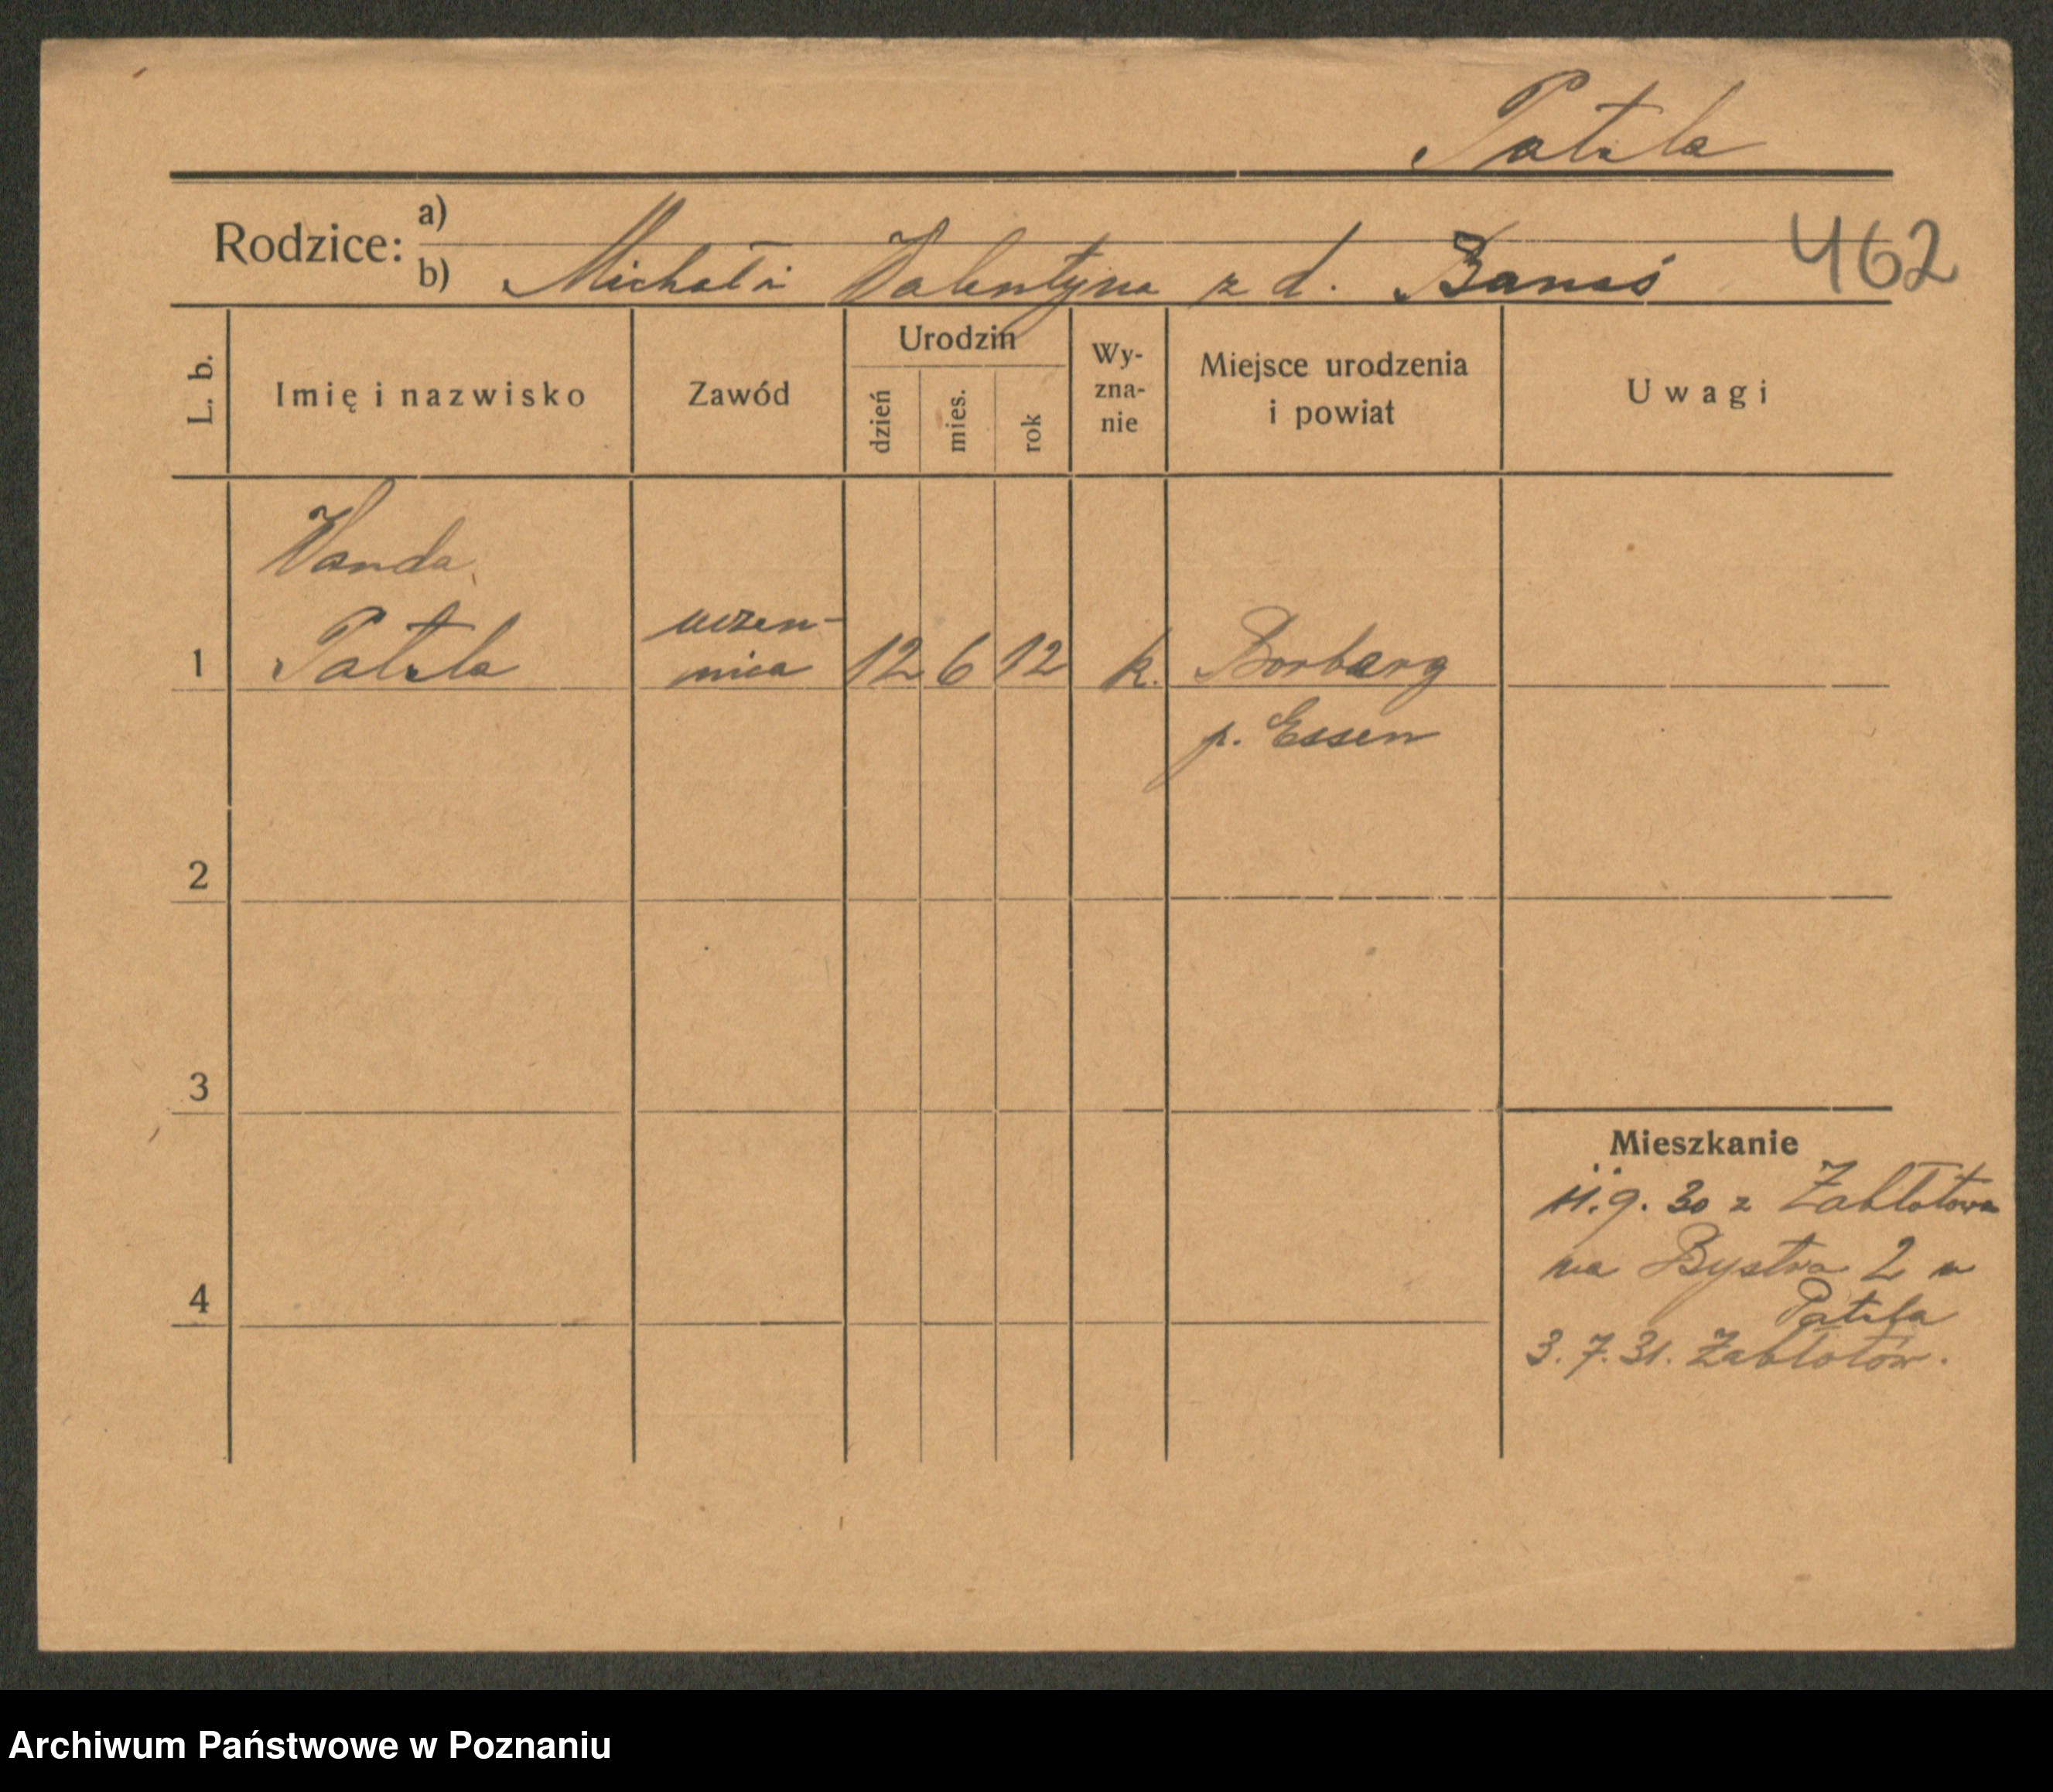 Patzla
Rodzice: a)
b) Michał i Walentyna z d. Banaś
462
L. b.
Imię i nazwisko
Zawód
Urodzin
dzień
mies.
rok
Wy-
zna-
nie
Miejsce urodzenia
i powiat
Uwagi
Wanda
Patzla
uczen-
nica
1
12
6
12
k.
Borbarg
p. Essen
2
3
4
Mieszkanie
11.9.30 z Zabłotowa
na Bystra 2 u
Patzla
3.7.31. Zabłotów.
Archiwum Państwowe w Poznaniu